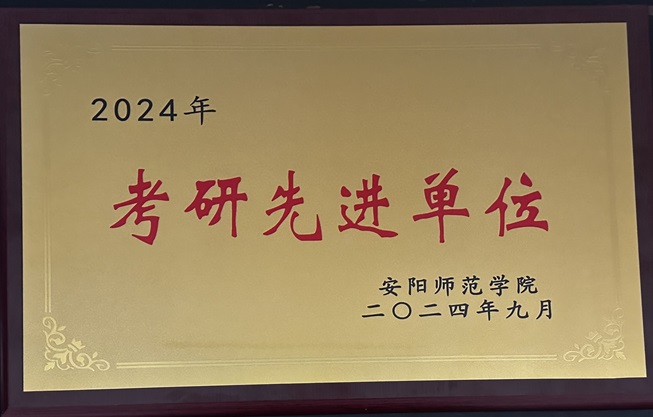 2024年
考研先进单位
安阳师范学院
二〇二四年九月